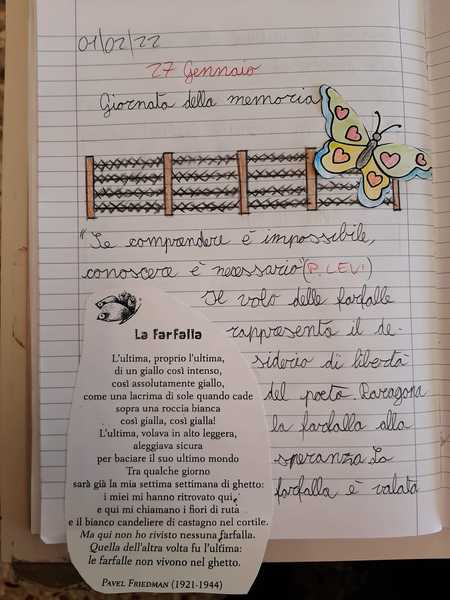 01/02/22
27 Gennaio
Giornata della memoria
"Se comprendere è impossibile,
conoscere è necessario" (P. LEVI)
Il volo delle farfalle
rappresenta il de-
siderio di libertà
del poeta. Paragona
la farfalla alla
speranza. La
farfalla è volata
La farfalla
L'ultima, proprio l'ultima,
di un giallo così intenso,
così assolutamente giallo,
come una lacrima di sole quando cade
sopra una roccia bianca
così gialla, così gialla!
L'ultima, volava in alto leggera,
aleggiava sicura
per baciare il suo ultimo mondo
Tra qualche giorno
sarà già la mia settima settimana di ghetto:
i miei mi hanno ritrovato qui
e qui mi chiamano i fiori di ruta
e il bianco candeliere di castagno nel cortile.
Ma qui non ho rivisto nessuna farfalla.
Quella dell'altra volta fu l'ultima:
le farfalle non vivono nel ghetto.
PAVEL FRIEDMAN (1921-1944)